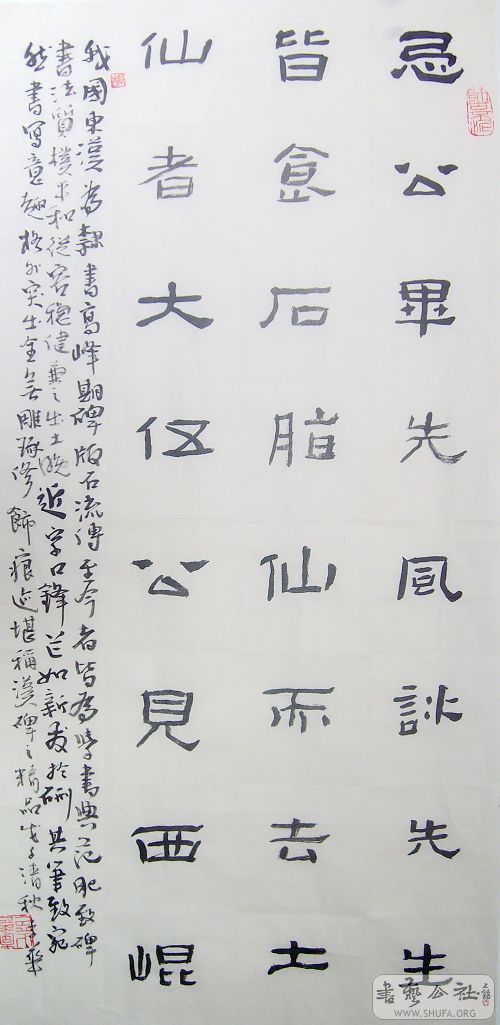 忌公畢先風許先生
皆食石脂仙而去土
仙者大伍公見西崐
我國東漢為隸書高峰期碑版石流傳至今者皆為學書典范肥致碑
書法質樸平和從容穩健兼之出土晚近字口鋒芒如新發於硎其筆致宛
然書寫意趣格外突出全無雕琢修飾痕迹堪稱漢碑之精品戊子清秋
書藝公社
WWW.SHUFA.ORG